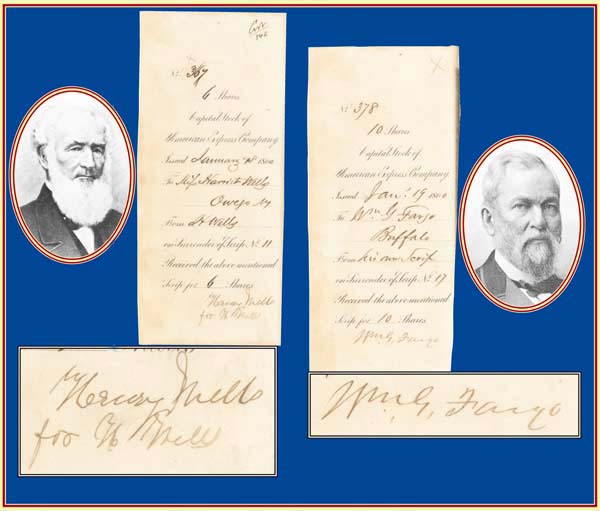 No. 367
6 Shares
Capital Stock of
American Express Company
Issued January 18 1860
To Miss Harriet Wells
Owego NY
From H Wells
on Surrender of Scrip No. 11
Received the above mentioned
Scrip for 6 Shares
Henry Wells
for H Wells
No. 378
10 Shares
Capital Stock of
American Express Company
Issued Jany. 19 1860
To Wm G Fargo
Buffalo
From his own Scrip
on Surrender of Scrip No. 17
Received the above mentioned
Scrip for 10 Shares
Wm G. Fargo
Henry Wells
for H Wells
Wm G. Fargo